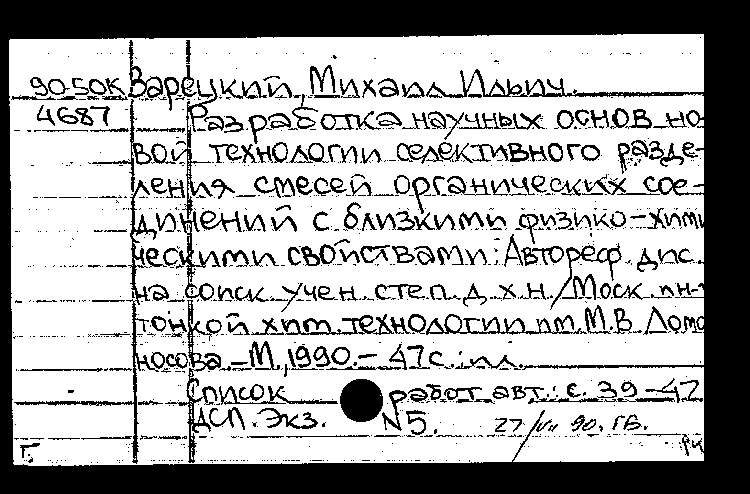 90-50К Варецкий, Михаил Ильич.
4687 Разработка научных основ но
вой технологии селективного разде-
ления смесей органических сое-
динений с близкими физико-хими
ческими свойствами: Автореф. дис.
на соиск. учен. степ. д.х.н. / Моск. ин-т
тонкой хим. технологии им. М.В. Ломо
носова. - М., 1990. - 47 с.: ил.
Список работ авт.: с. 39-47
ДСП. Экз. N 5. 27/VII 90, ГБ.
Г. РК